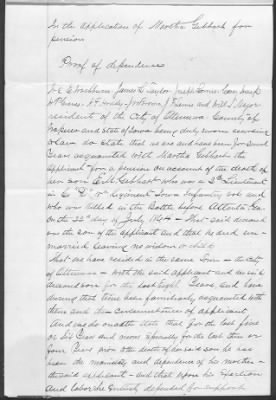 In the application of Martha Gebhart for
pension
Proof of dependence
Washburn James Taylor Joseph
resident of the City of Ottumwa County of
Wapello and State of Iowa being duly sworn according
to law do state that we are and have been for several
Years acquainted with Martha Gebhart the
applicant for a pension on account of the death of
her son E H Gebhart who was a Lieutenant
in Co Regiment Iowa Infantry vols and
who was killed in the Battle before Atlanta Ga
on the 22d day of July 1864 – That said deceased
was the son of the applicant and that he died un-
married leaving no widow or child
That we have resided in the same town in the city
of Ottumwa – with the said applicant and her said
deceased son for the last eight Years and have
during that time been familiarly acquainted with
them and the circumstances of applicant
And we do on oath state that for the last five
or six Years and more specially for the last three or
four Years prior to the death of her said son he has
been the main stay and dependence of his mother –
the said applicant – and that upon his exertion
and labor she entirely depended for support